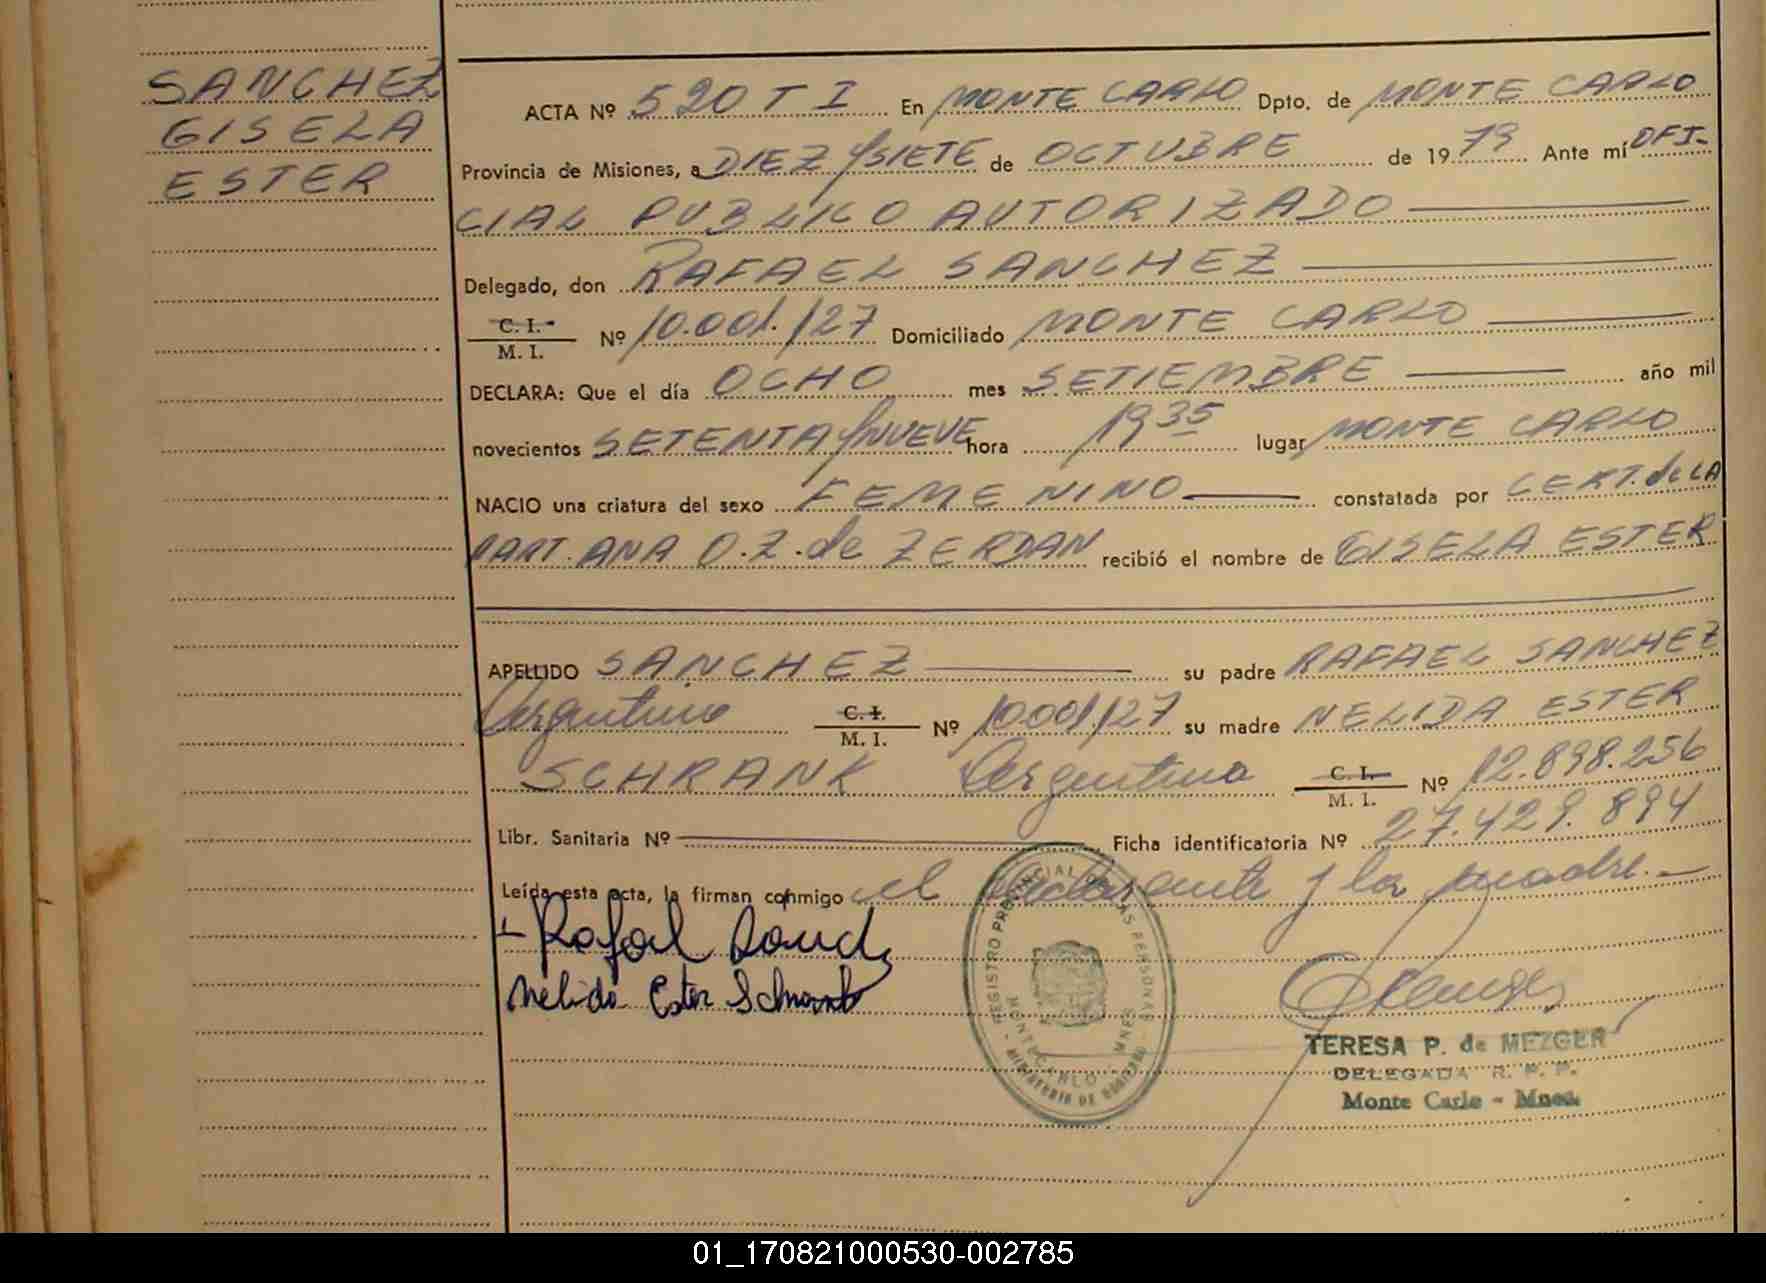 SANCHEZ
GISELA
ESTER
ACTA Nº 520 T I En MONTE CARLO Dpto. de MONTE CARLO
Provincia de Misiones, a DIEZ Y SIETE de OCTUBRE de 1979 Ante mí OFI-
CIAL PUBLICO AUTORIZADO
Delegado, don RAFAEL SANCHEZ
C. I.
M. I. Nº 10.001.127 Domiciliado MONTE CARLO
DECLARA: Que el día OCHO mes SETIEMBRE año mil
novecientos SETENTA Y NUEVE hora 19 35 lugar MONTE CARLO
NACIO una criatura del sexo FEMENINO constatada por CERT. de LA
PART. ANA O. Z. de ZERDAN recibió el nombre de GISELA ESTER
APELLIDO SANCHEZ su padre RAFAEL SANCHEZ
Argentino C. I. M. I. Nº 10.001.127 su madre NELIDA ESTER
SCHRANK Argentina C. I. M. I. Nº 12.898.256
Libr. Sanitaria Nº Ficha identificatoria Nº 27.429.894
Leída esta acta, la firman conmigo el declarante y la madre.-
Rafael
Nelida Ester Schrank
REGISTRO PROVINCIAL DE LAS PERSONAS
MONTECARLO - MNES
MINISTERIO DE GOBIERNO
TERESA P. de MEZGER
DELEGADA R. P. P.
Monte Carlo - Mnes.
01_170821000530-002785